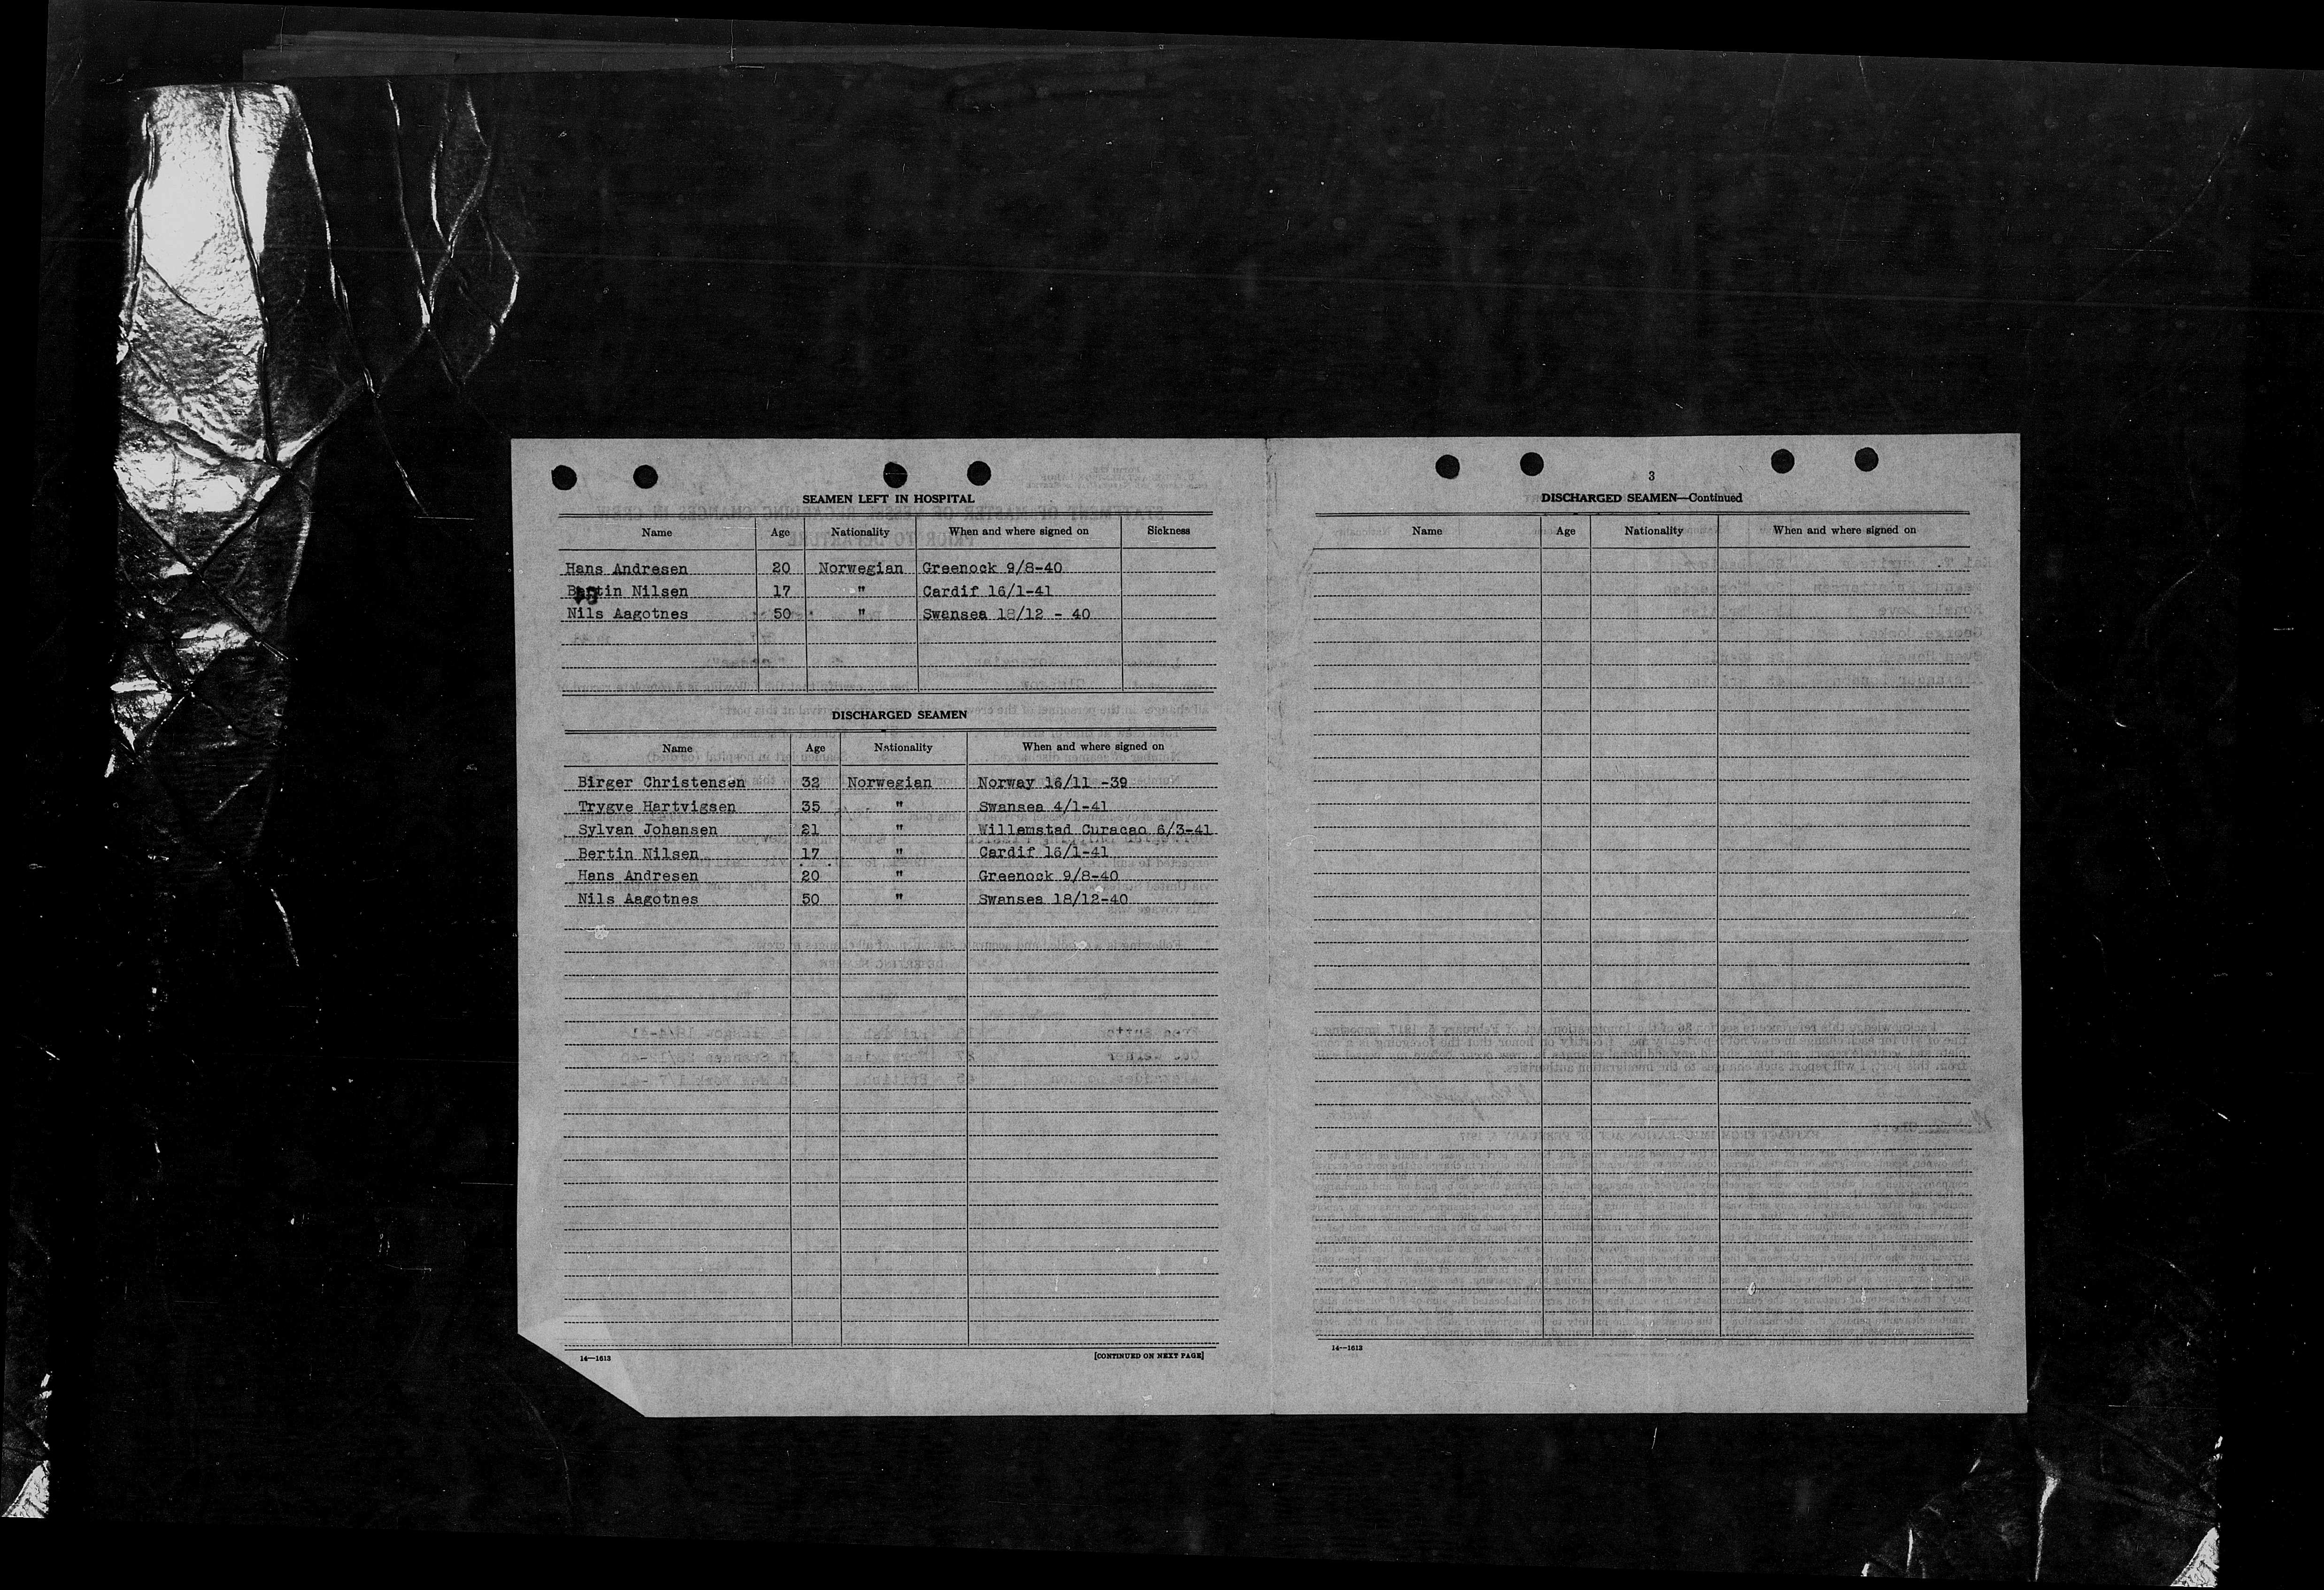 SEAMEN LEFT IN HOSPITAL
Name Age Nationality When and where signed on Sickness
Hans Andresen 20 Norwegian Greenock 9/8-40
Bertin Nilsen 17 " Cardif 16/1-41
Nils Aagotnes 50 " Swansea 18/12 - 40
DISCHARGED SEAMEN
Name Age Nationality When and where signed on
Birger Christensen 32 Norwegian Norway 16/11 -39
Trygve Hartvigsen 35 " Swansea 4/1-41
Sylvan Johansen 21 " Willemstad Curacao 6/3-41
Bertin Nilsen 17 " Cardif 16/1-41
Hans Andresen 20 " Greenock 9/8-40
Nils Aagotnes 50 " Swansea 18/12-40
14—1613 [CONTINUED ON NEXT PAGE]
3
DISCHARGED SEAMEN—Continued
Name Age Nationality When and where signed on
14—1613